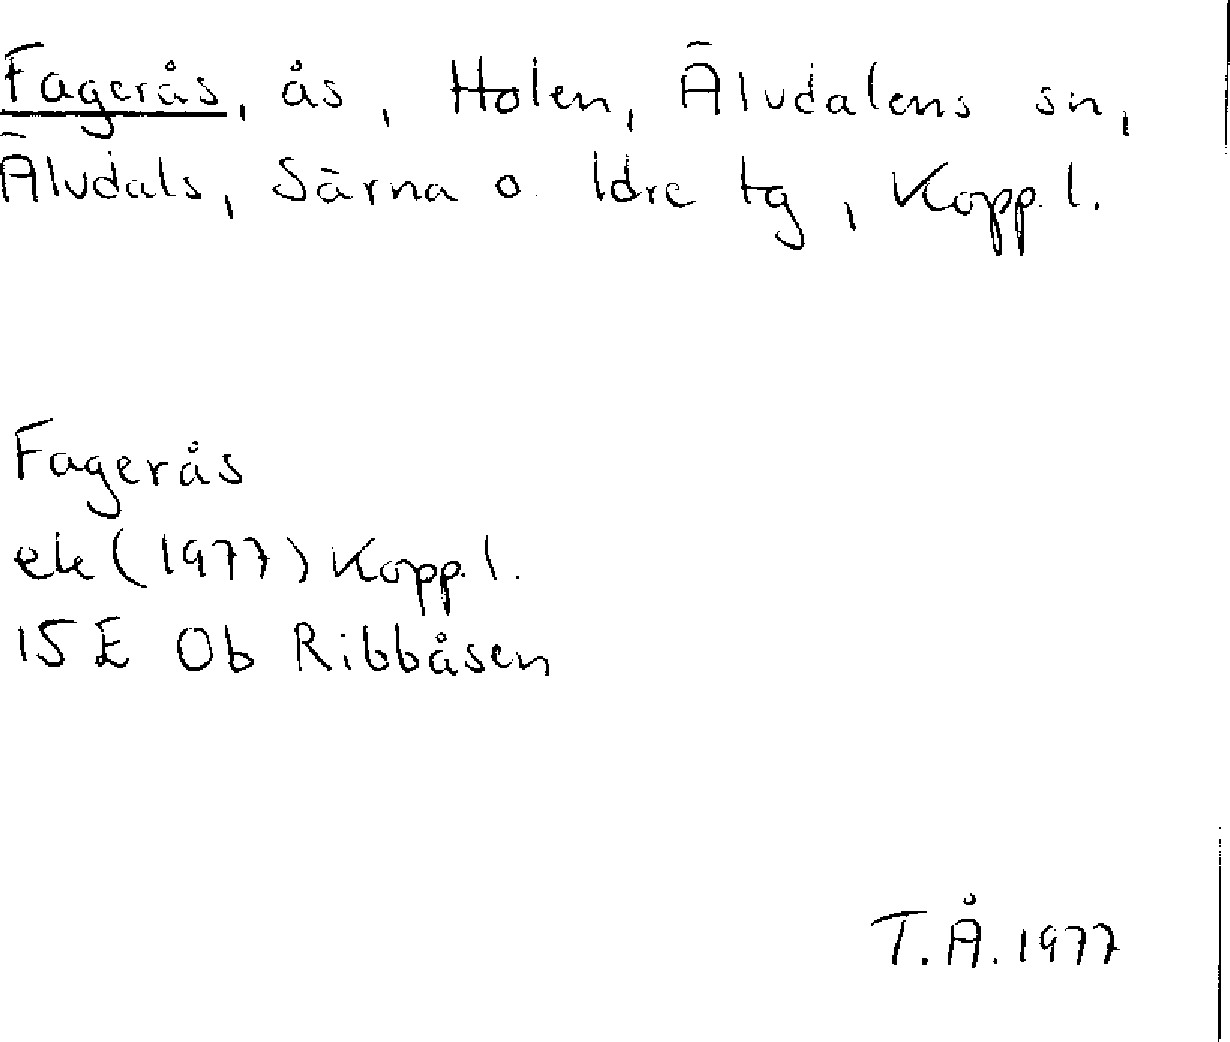 Fagerås, ås, Holen, Älvdalens sn,
Älvdals, Särna o. Idre tg, Kopp. l.
Fagerås
ek (1977) Kopp. l.
15 E Ob Ribbåsen
T.Å. 1977